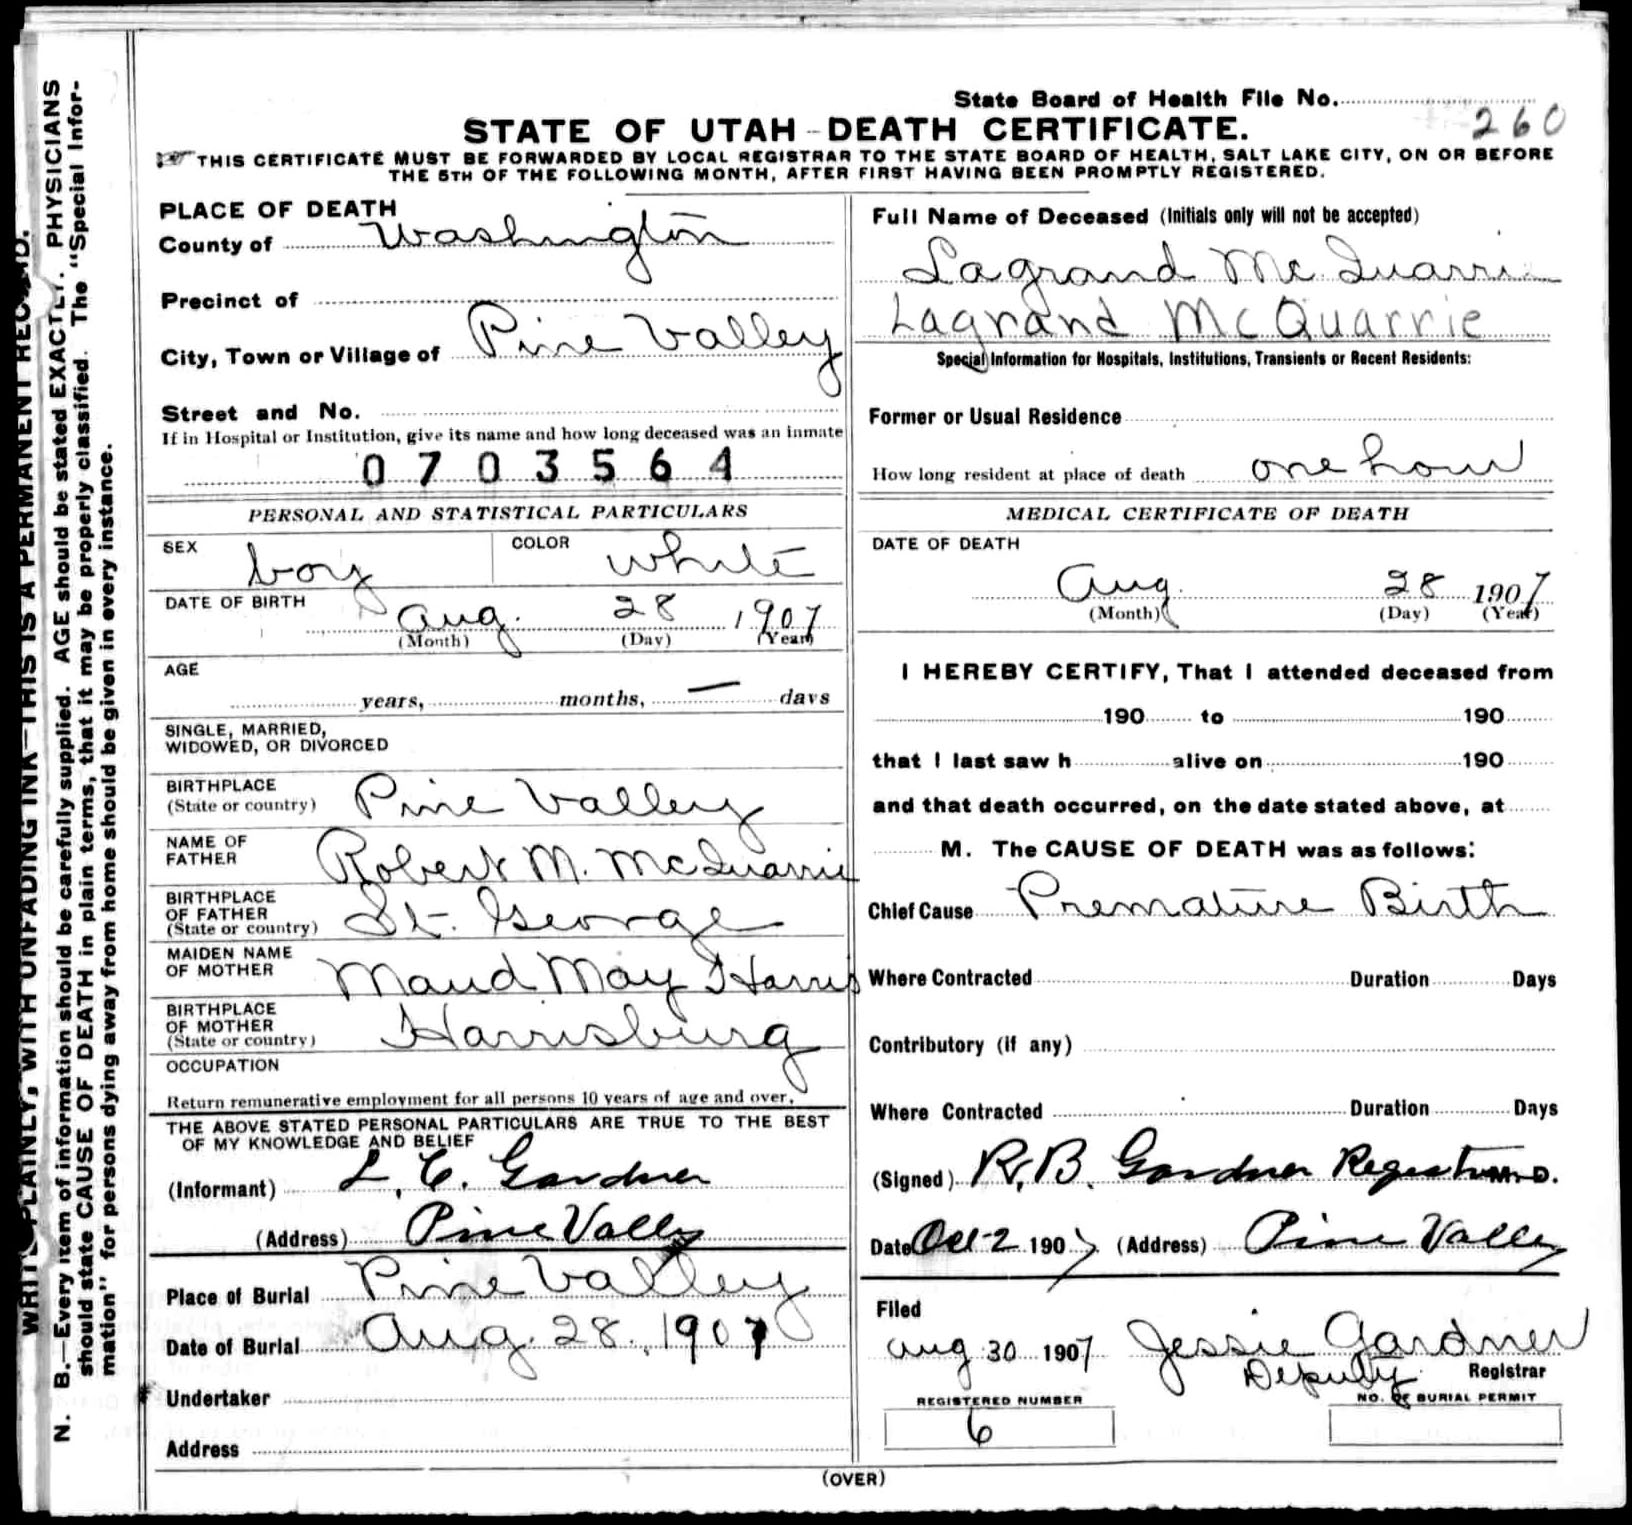 WRITE PLAINLY, WITH UNFADING INK—THIS IS A PERMANENT RECORD.
N. B.—Every item of information should be carefully supplied. AGE should be stated EXACTLY. PHYSICIANS
should state CAUSE OF DEATH in plain terms, that it may be properly classified. The "Special Infor-
mation" for persons dying away from home should be given in every instance.
State Board of Health File No.
260
STATE OF UTAH—DEATH CERTIFICATE.
THIS CERTIFICATE MUST BE FORWARDED BY LOCAL REGISTRAR TO THE STATE BOARD OF HEALTH, SALT LAKE CITY, ON OR BEFORE
THE 5TH OF THE FOLLOWING MONTH, AFTER FIRST HAVING BEEN PROMPTLY REGISTERED.
PLACE OF DEATH
County of Washington
Precinct of
City, Town or Village of Pine Valley
Street and No.
If in Hospital or Institution, give its name and how long deceased was an inmate
0703564
PERSONAL AND STATISTICAL PARTICULARS
SEX boy COLOR white
DATE OF BIRTH
Aug. 28 1907
(Month) (Day) (Year)
AGE
years, months, — days
SINGLE, MARRIED,
WIDOWED, OR DIVORCED
BIRTHPLACE
(State or country) Pine Valley
NAME OF
FATHER Robert M. McQuarrie
BIRTHPLACE
OF FATHER
(State or country) St. George
MAIDEN NAME
OF MOTHER Maud May Harris
BIRTHPLACE
OF MOTHER
(State or country) Harrisburg
OCCUPATION
Return remunerative employment for all persons 10 years of age and over.
THE ABOVE STATED PERSONAL PARTICULARS ARE TRUE TO THE BEST
OF MY KNOWLEDGE AND BELIEF
(Informant) L. C. Gardner
(Address) Pine Valley
Place of Burial Pine Valley
Date of Burial Aug. 28. 1907
Undertaker
Address
Full Name of Deceased (Initials only will not be accepted)
Lagrand McQuarrie
Lagrand McQuarrie
Special Information for Hospitals, Institutions, Transients or Recent Residents:
Former or Usual Residence
How long resident at place of death one hour
MEDICAL CERTIFICATE OF DEATH
DATE OF DEATH
Aug. 28 1907
(Month) (Day) (Year)
I HEREBY CERTIFY, That I attended deceased from
190 to 190
that I last saw h alive on 190
and that death occurred, on the date stated above, at
M. The CAUSE OF DEATH was as follows:
Chief Cause Premature Birth
Where Contracted Duration Days
Contributory (if any)
Where Contracted Duration Days
(Signed) R. B. Gardner Registrar M. D.
Date Oct 2 1907 (Address) Pine Valley
Filed
Aug 30 1907 Jessie Gardner
Deputy Registrar
REGISTERED NUMBER NO. OF BURIAL PERMIT
6
(OVER)